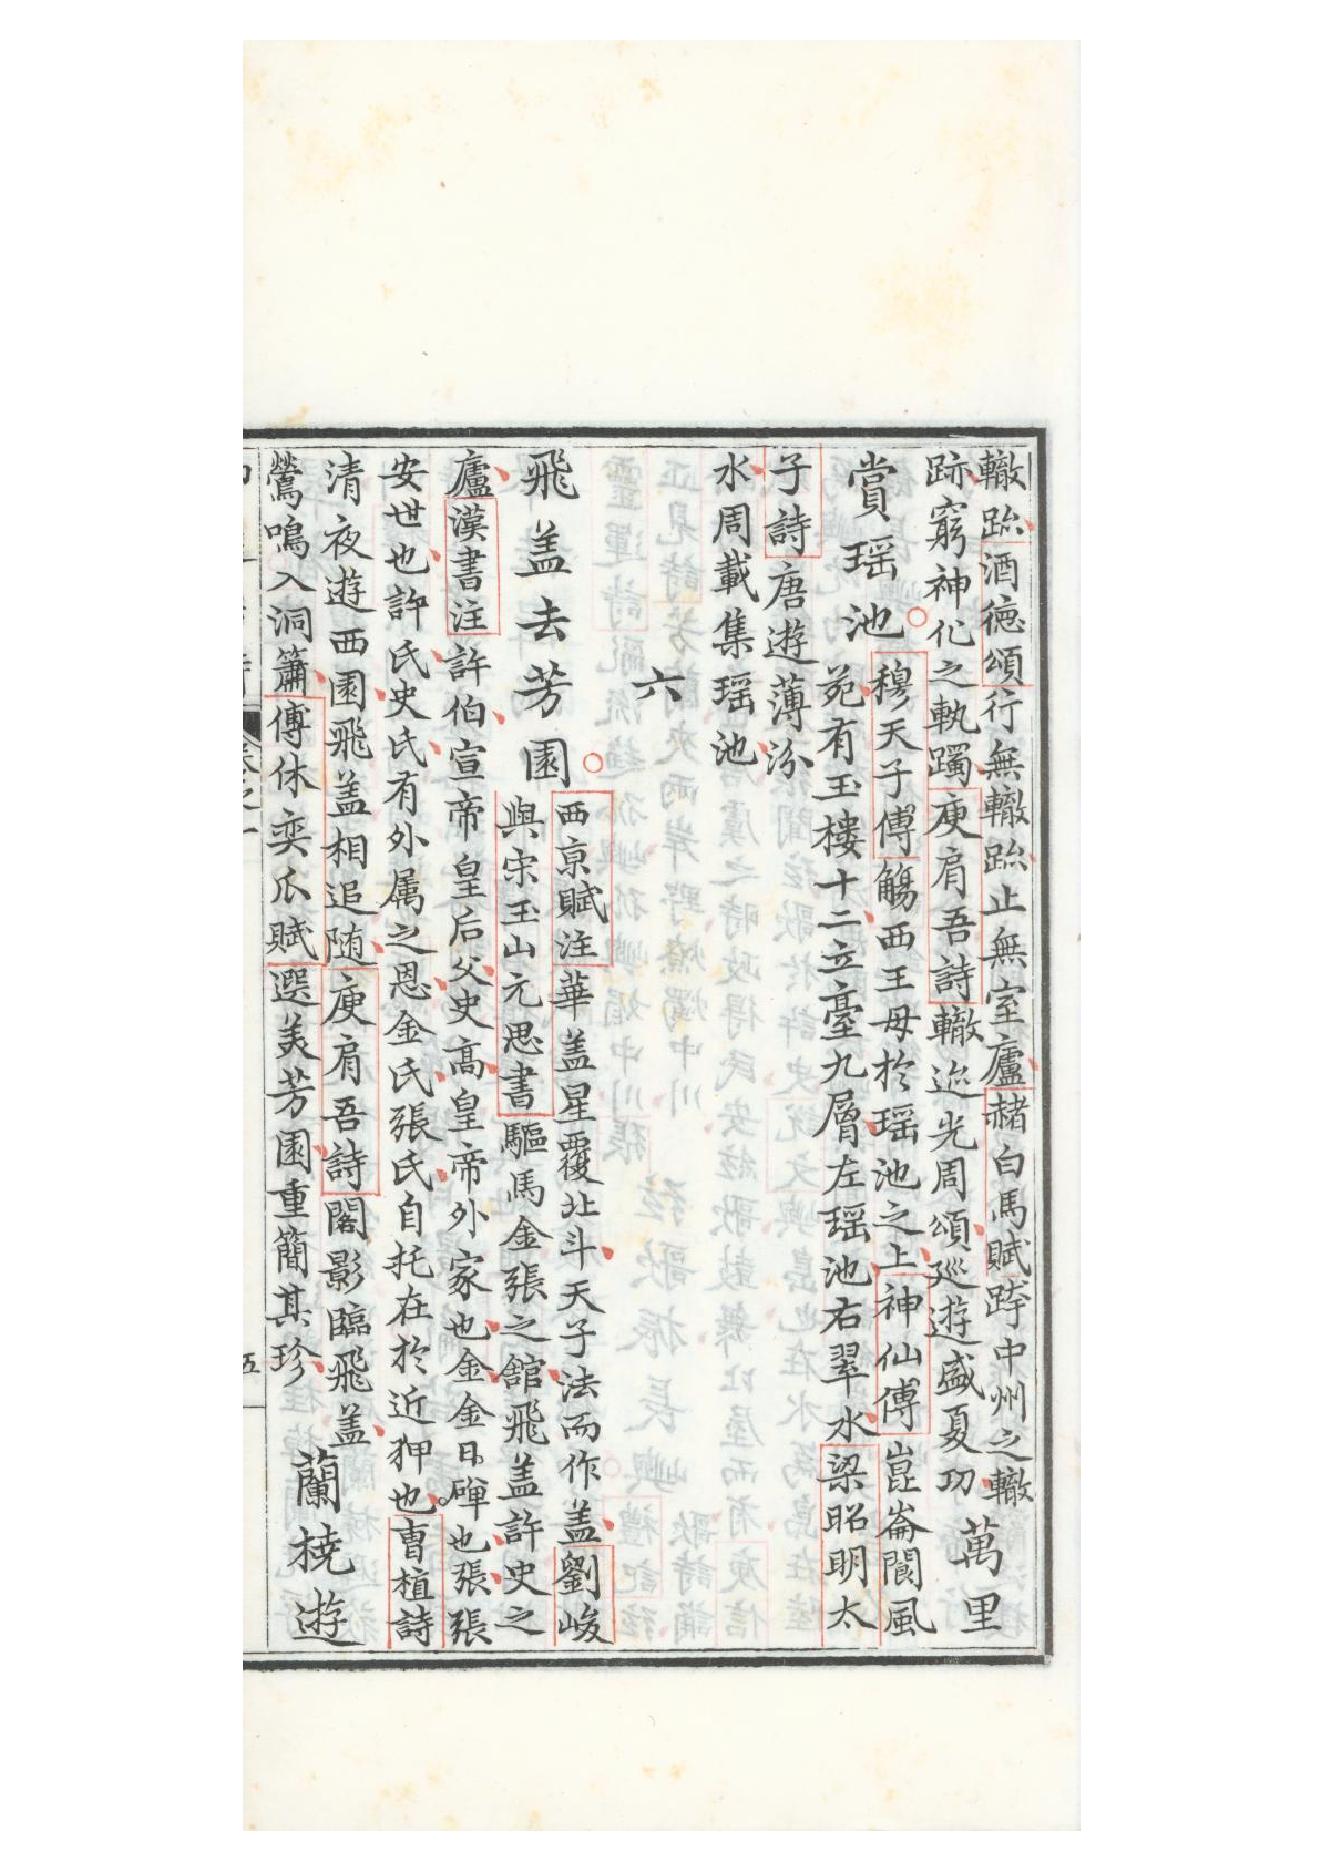 轍跡酒德頌行無轍跡止無室廬赭白馬賦跨中州之轍
跡窮神化之軌躅庾肩吾詩轍迹光周頌巡遊盛夏功
萬里
賞瑶池
穆天子傳觴西王母於瑶池之上神仙傳崑崙閬風
苑有玉樓十二玄臺九層左瑶池右翠水梁昭明太
子詩唐遊薄汾
水周載集瑶池
六
飛盖去芳園
西京賦注華盖星覆北斗天子法而作盖劉峻
與宋玉山元思書驅馬金張之舘飛盖許史之
廬漢書注許伯宣帝皇后父史高皇帝外家也金金日磾也張張
安世也許氏史氏有外属之恩金氏張氏自托在於近狎也曹植詩
清夜遊西園飛盖相追随庾肩吾詩閣影臨飛盖
鶯鳴入洞簫傅休奕瓜賦選美芳園重簡其珍
蘭橈遊
五